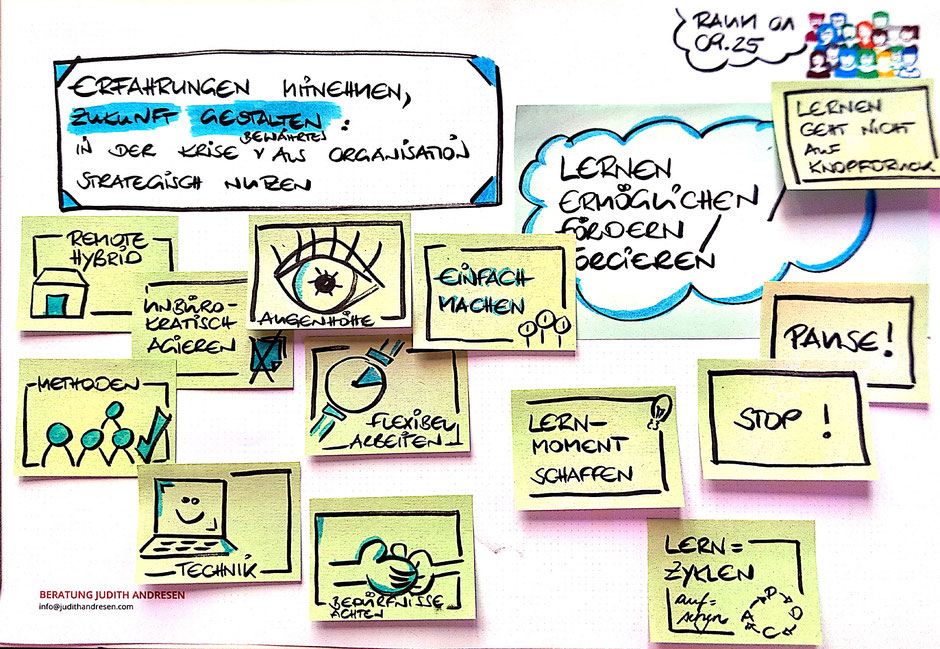 RAUM 01
09.25
ERFAHRUNGEN MITNEHMEN,
ZUKUNFT GESTALTEN:
BEWÄHRTES
IN DER KRISE v ALS ORGANISATION
STRATEGISCH NUTZEN
LERNEN
GEHT NICHT
AUF
KNOPFDRUCK
LERNEN
ERMÖGLICHEN
FÖRDERN /
FORCIEREN
REMOTE
HYBRID
UNBÜRO-
KRATISCH
AGIEREN
AUGENHÖHE
EINFACH
MACHEN
PAUSE!
STOP!
METHODEN
FLEXIBEL
ARBEITEN
LERN-
MOMENT
SCHAFFEN
TECHNIK
BEDÜRFNISSE
ACHTEN
LERN=
ZYKLEN
auf=
P
D
C
A
BERATUNG JUDITH ANDRESEN
info@judithandresen.com